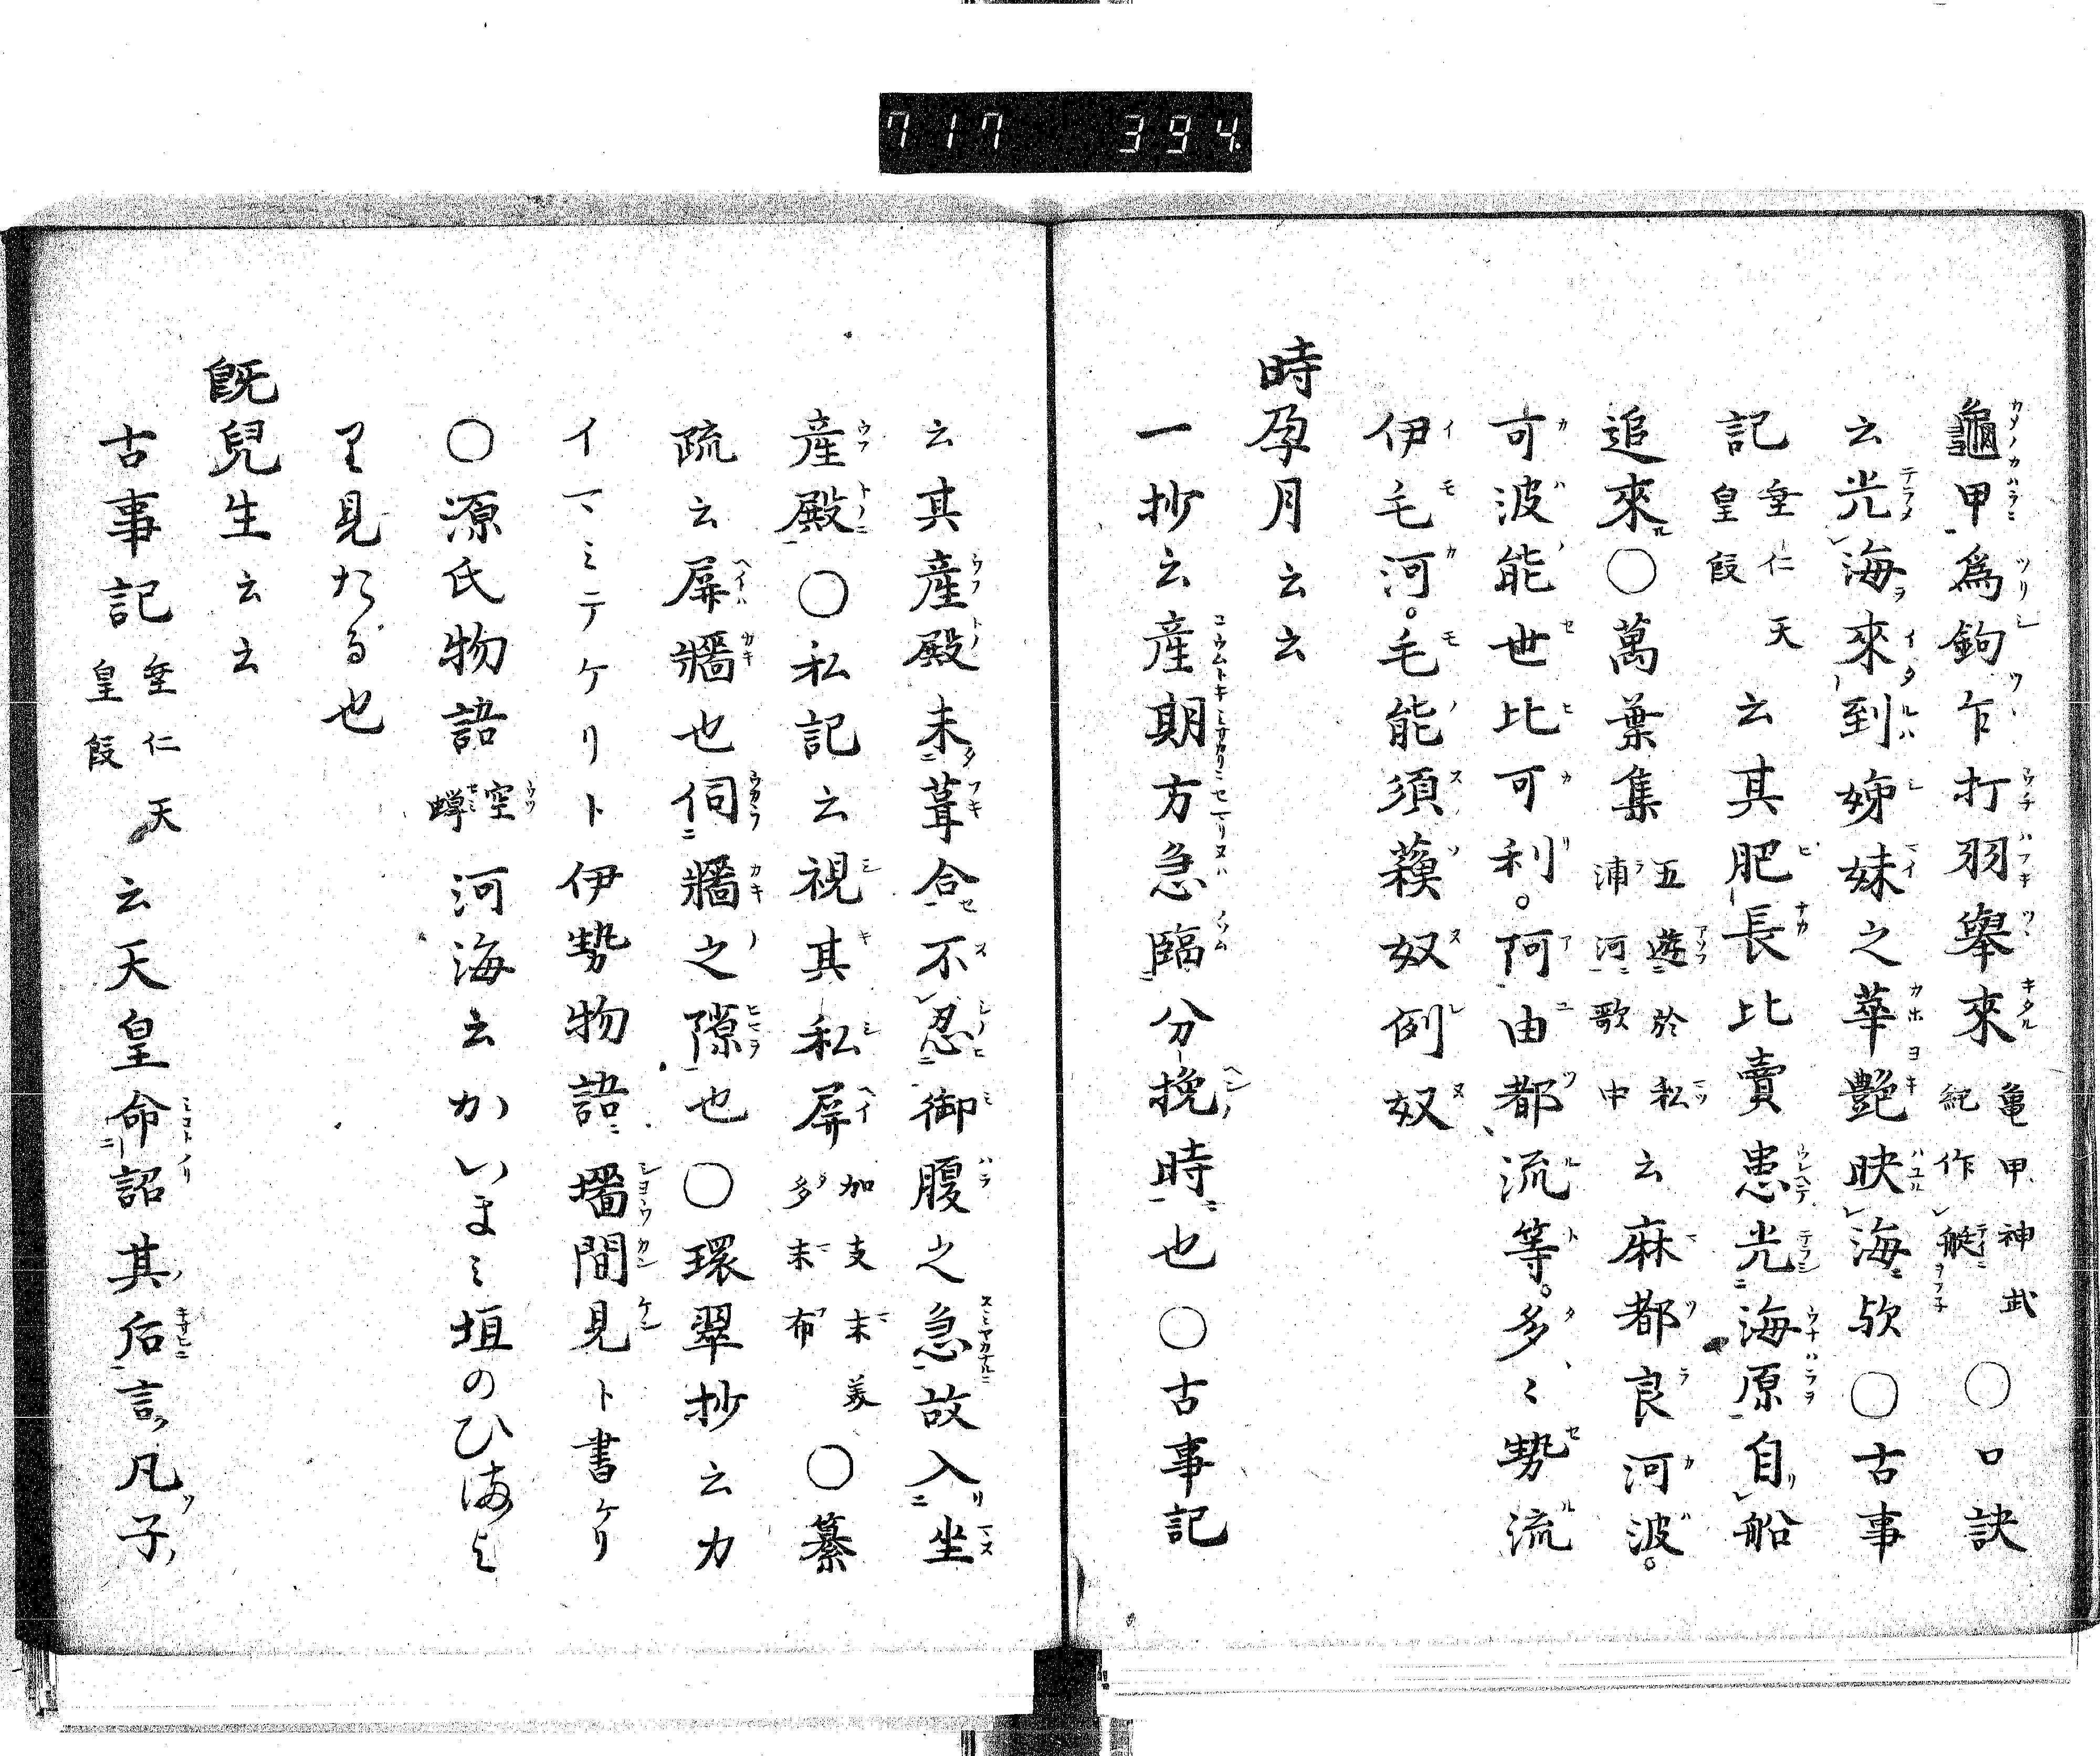 717 394
龜甲為鉤乍打羽擧來亀甲神武紀作艇○口訣
云光海來到姊妹之華艷映海歟○古事
記垂仁天皇段云其肥長比賣患光海原自船
追來○萬葉集五遊於松浦河歌中云麻都良河波
可波能世比可利阿由都流等多〻勢流
伊毛河毛能須蘓奴例奴
時孕月云云
一抄云産期方急臨分挽時也○古事記
云其産殿未葺合不忍御腹之急故入坐
産殿○私記云視其私屏加支末美多末布○纂
疏云屏牆也伺牆之隙也○環翠抄云カ
イマミテケリト伊勢物語墻間見ト書ケリ
○源氏物語空蝉河海云かいまミ垣のひまよ
り見たる也
既兒生云云
古事記垂仁天皇段云天皇命詔其后言凡子